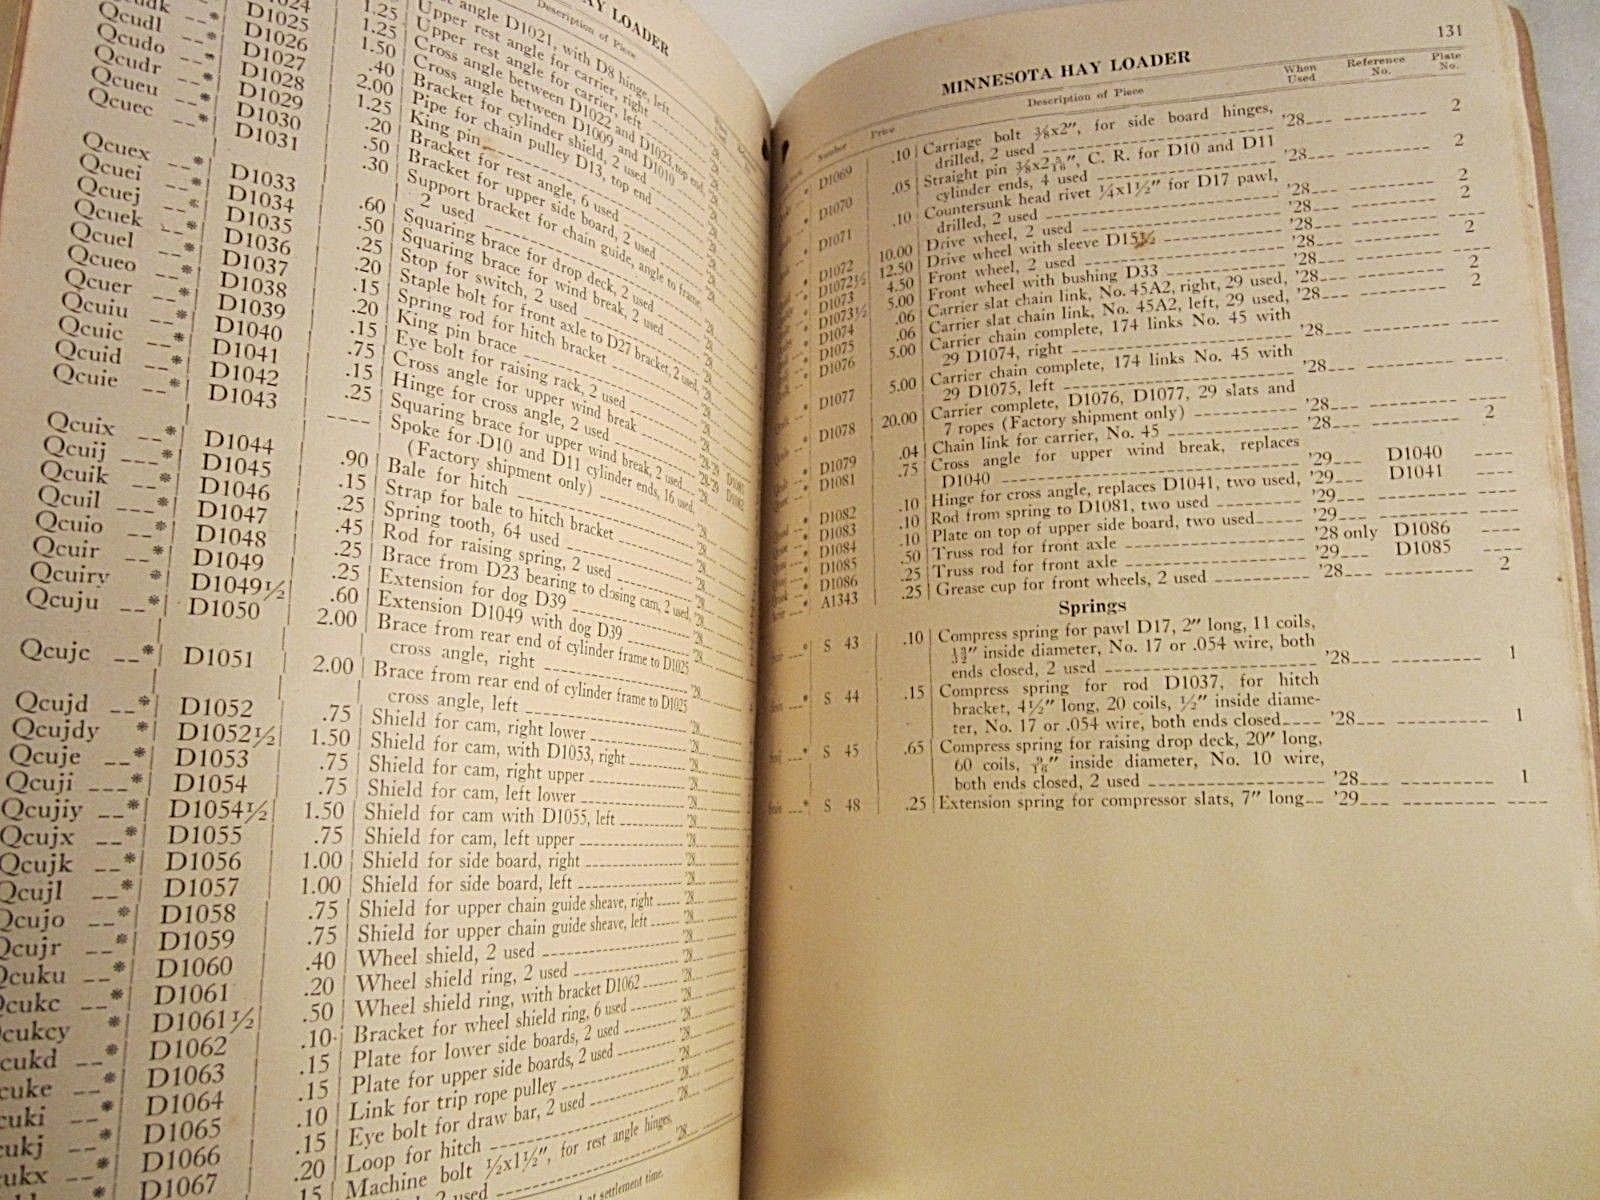 HAY LOADER
Description of Piece
Qcudl D1025 1.25 Upper rest angle for carrier, right
Qcudo D1026 1.25 Upper rest angle for carrier, left
Qcudr
Qcueu
Qcuec
Qcuex --* D1033
Qcuei --* D1034
Qcuej --* D1035
Qcuek --* D1036
Qcuel --* D1037
Qcueo --* D1038
Qcuer --* D1039
Qcuiu --* D1040
Qcuic --* D1041
Qcuid --* D1042
Qcuie --* D1043
King pin
Bracket for rest angle, 6 used
Bracket for upper side board, 2 used
Support bracket for chain guide, angle to frame,
2 used
Squaring brace for drop deck, 2 used
Squaring brace for wind break, 2 used
Stop for switch, 2 used
Staple bolt for front axle to D27 bracket, 2 used,
Spring rod for hitch bracket
King pin brace
Eye bolt for raising rack, 2 used
Cross angle for upper wind break
Hinge for cross angle, 2 used
Squaring brace for upper wind break, 2 used
Qcuix --* D1044 ---- Spoke for D10 and D11 cylinder ends, 16 used,
(Factory shipment only) '28
Qcuij ---* D1045 .90 Bale for hitch
Qcuik --* D1046 .15 Strap for bale to hitch bracket
Qcuil ---* D1047 .25 Spring tooth, 64 used
Qcuio --* D1048 .45 Rod for raising spring, 2 used
Qcuir --* D1049 .25 Brace from D23 bearing to closing cam, 2 used,
Qcuiry * D1049½ .25 Extension for dog D39
Qcuju --* D1050 .60 Extension D1049 with dog D39
2.00 Brace from rear end of cylinder frame to D1025
cross angle, right
Qcujc --* D1051 2.00 Brace from rear end of cylinder frame to D1025
cross angle, left
Qcujd --* D1052 .75 Shield for cam, right lower
Qcujdy --* D1052½ 1.50 Shield for cam, with D1053, right
Qcuje --* D1053 .75 Shield for cam, right upper
Qcuji ---* D1054 .75 Shield for cam, left lower
Qcujiy --* D1054½ 1.50 Shield for cam with D1055, left
Qcujx --* D1055 .75 Shield for cam, left upper
Qcujk --* D1056 1.00 Shield for side board, right
Qcujl --* D1057 1.00 Shield for side board, left
Qcujo --* D1058 .75 Shield for upper chain guide sheave, right
Qcujr --* D1059 .75 Shield for upper chain guide sheave, left
Qcuku --* D1060 .40 Wheel shield, 2 used
Qcukc --* D1061 .20 Wheel shield ring, 2 used
cukcy * D1061½ .50 Wheel shield ring, with bracket D1062
cukd --* D1062 .10 Bracket for wheel shield ring, 6 used
cuke --* D1063 .15 Plate for lower side boards, 2 used
cuki --* D1064 .15 Plate for upper side boards, 2 used
cukj --* D1065 .10 Link for trip rope pulley
ukx --* D1066 .15 Eye bolt for draw bar, 2 used
D1067 .20 Loop for hitch
.15 Machine bolt ½x1½", for rest angle hinges,
2 used
at settlement time.
131
MINNESOTA HAY LOADER
Number Price Description of Piece When Used Reference No. Plate No.
D1069 .10 Carriage bolt ⅜x2", for side board hinges,
drilled, 2 used '28 2
D1070 .05 Straight pin ⅜x2 5/16", C. R. for D10 and D11
cylinder ends, 4 used '28 2
D1071 .10 Countersunk head rivet ¼x1½" for D17 pawl,
drilled, 2 used '28
D1072 10.00 Drive wheel, 2 used '28 2
D1072½ 12.50 Drive wheel with sleeve D15½ '28
D1073 4.50 Front wheel, 2 used '28 2
D1073½ 5.00 Front wheel with bushing D33 '28
D1074 .06 Carrier slat chain link, No. 45A2, right, 29 used, '28 2
D1075 .06 Carrier slat chain link, No. 45A2, left, 29 used, '28 2
D1076 5.00 Carrier chain complete, 174 links No. 45 with
29 D1074, right '28
D1077 5.00 Carrier chain complete, 174 links No. 45 with
29 D1075, left '28
D1078 20.00 Carrier complete, D1076, D1077, 29 slats and
7 ropes (Factory shipment only) '28
D1079 .04 Chain link for carrier, No. 45 '28 2
D1081 .75 Cross angle for upper wind break, replaces
D1040 '29 D1040
D1082 .10 Hinge for cross angle, replaces D1041, two used, '29 D1041
D1083 .10 Rod from spring to D1081, two used '29
D1084 .10 Plate on top of upper side board, two used '29
D1085 .50 Truss rod for front axle '28 only D1086
D1086 .25 Truss rod for front axle '29 D1085
A1343 .25 Grease cup for front wheels, 2 used '28 2
Springs
S 43 .10 Compress spring for pawl D17, 2" long, 11 coils,
13/32" inside diameter, No. 17 or .054 wire, both
ends closed, 2 used '28 1
S 44 .15 Compress spring for rod D1037, for hitch
bracket, 4½" long, 20 coils, ½" inside diame-
ter, No. 17 or .054 wire, both ends closed '28 1
S 45 .65 Compress spring for raising drop deck, 20" long,
60 coils, 9/16" inside diameter, No. 10 wire,
both ends closed, 2 used '28 1
S 48 .25 Extension spring for compressor slats, 7" long '29